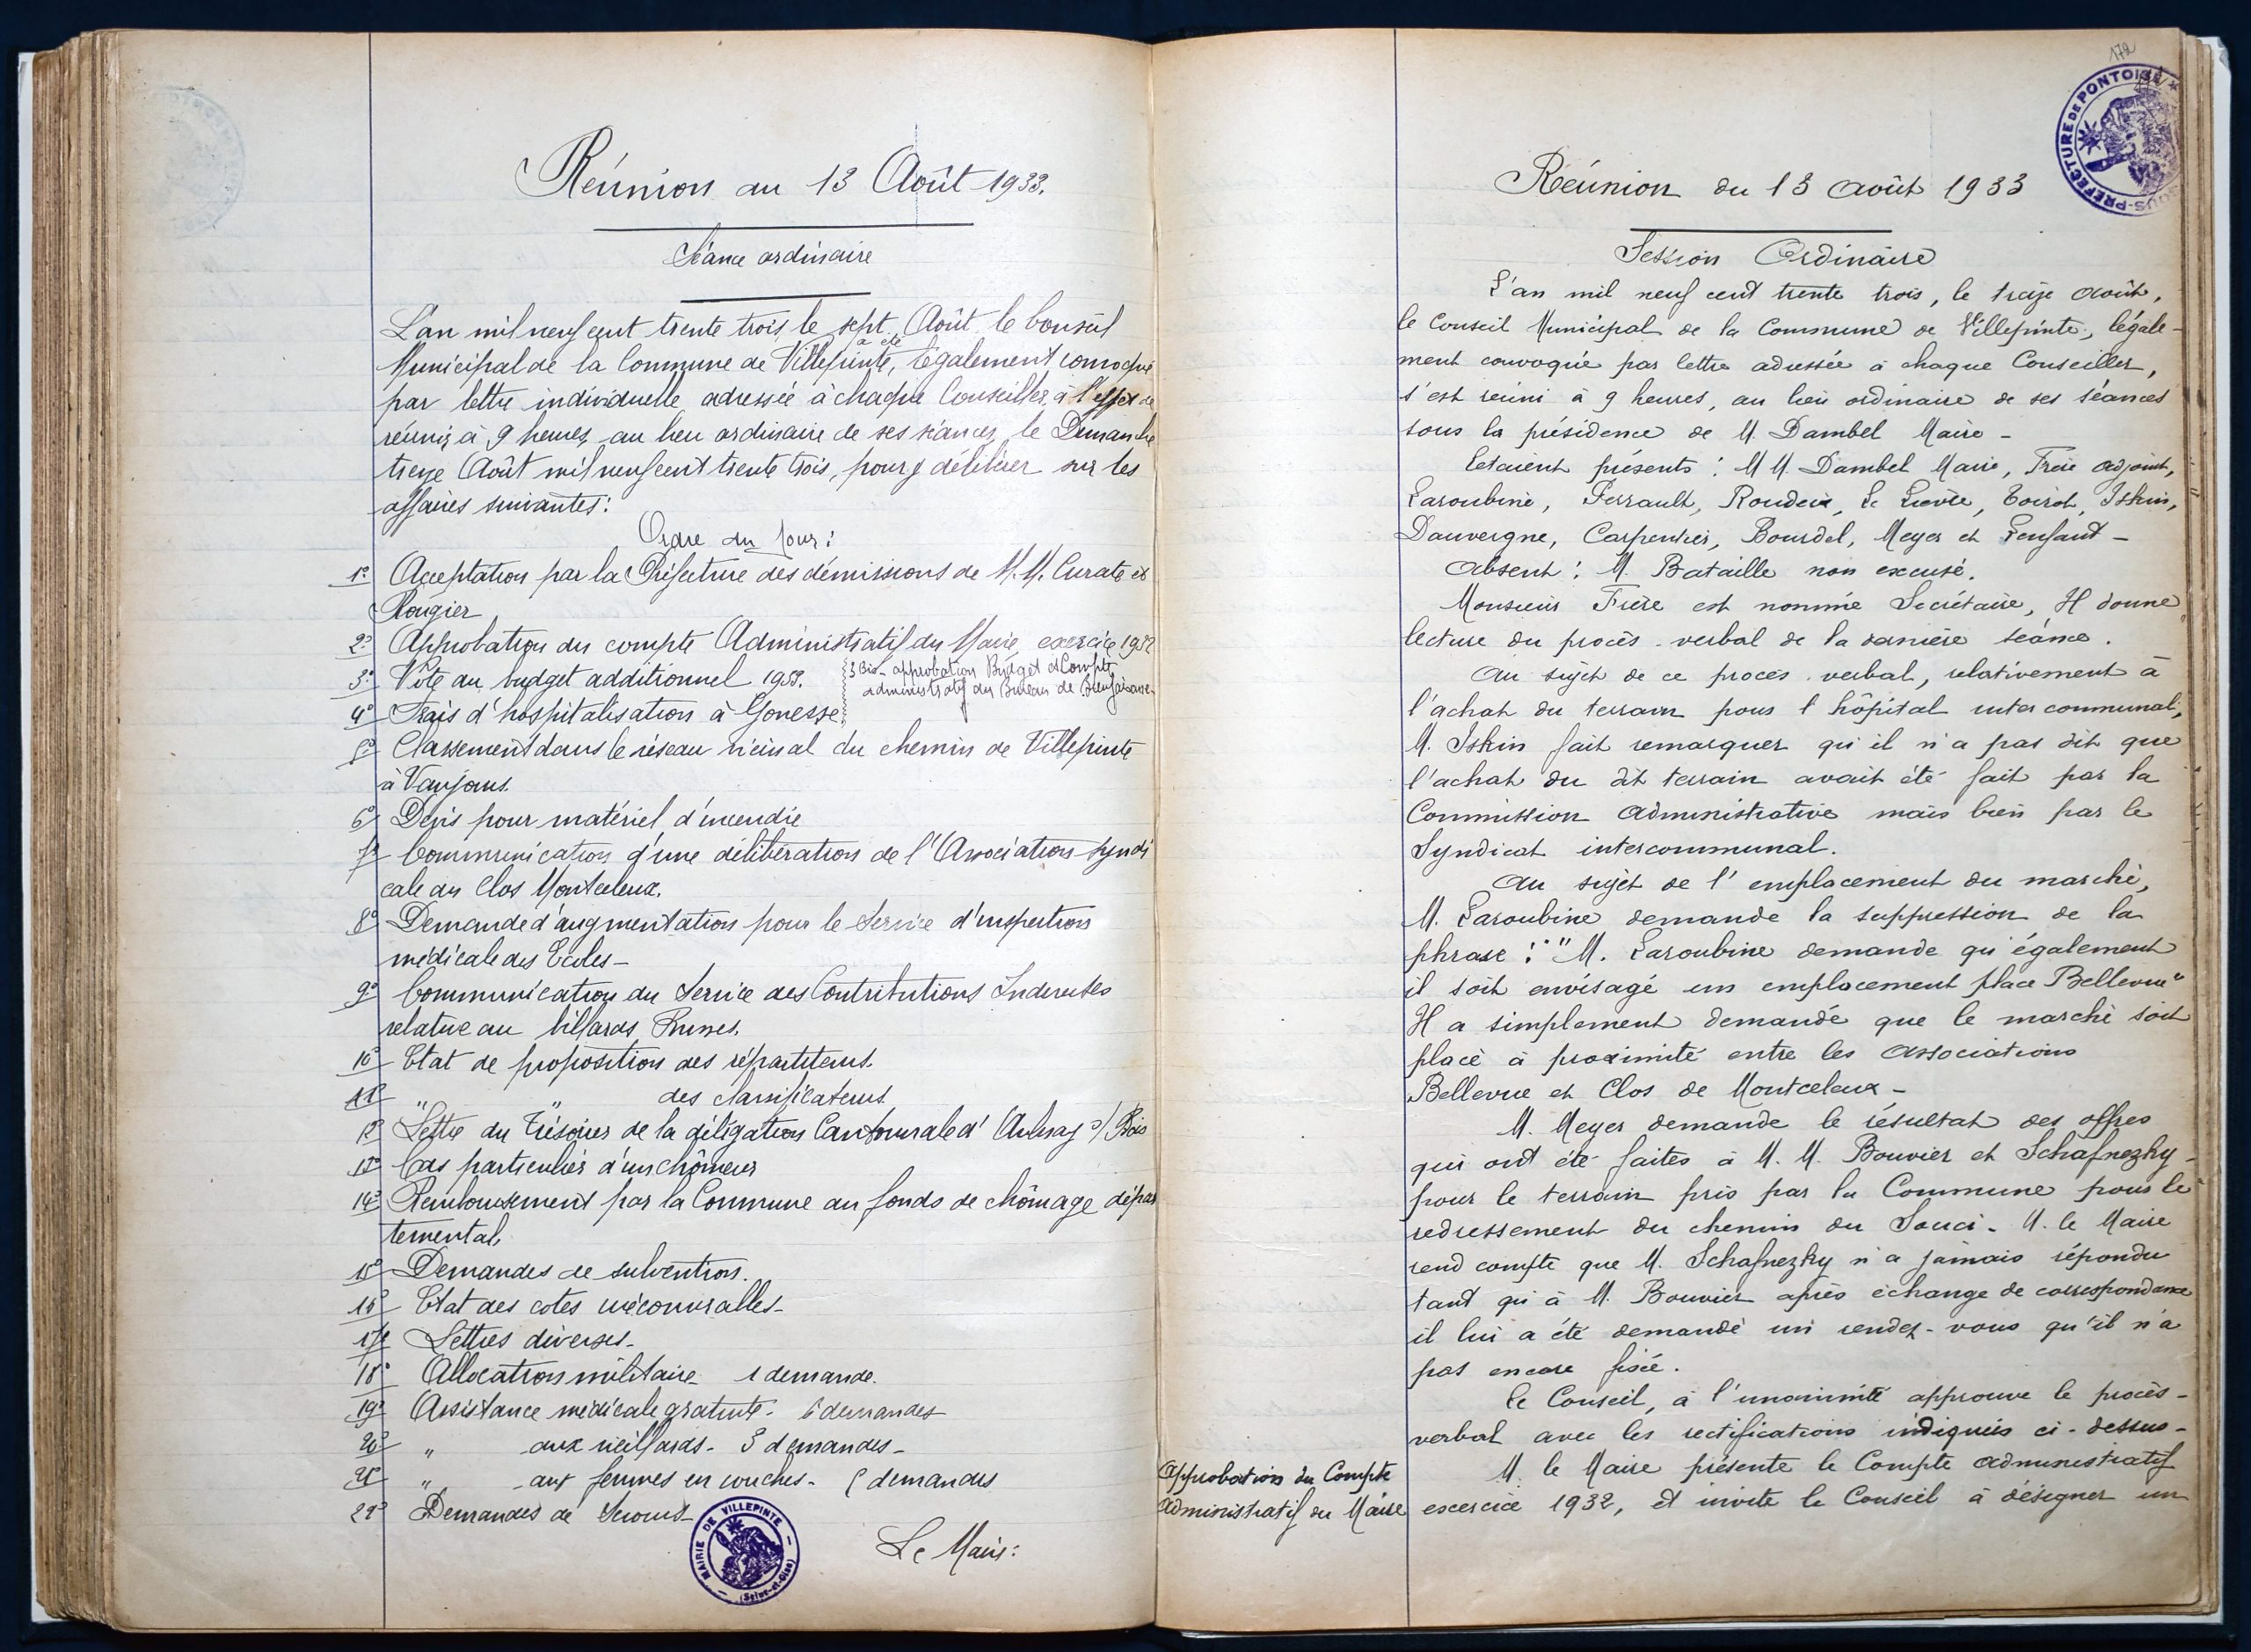 Réunion du 13 Août 1933.
Séance ordinaire
L'an mil neuf cent trente trois, le sept Août le Conseil
a été
Municipal de la Commune de Villepinte, légalement convoqué
par lettre individuelle adressée à chaque Conseiller, à l'effet de
réunir à 9 heures, au lieu ordinaire de ses séances, le Dimanche
treize Août mil neuf cent trente trois, pour y délibérer sur les
affaires suivantes:
Ordre du Jour:
1º Acceptation par la Préfecture des démissions de M.M. Curate et
Rougier
2º Approbation du compte Administratif du Maire, exercice 1932
3º Vote du budget additionnel 1933. 3 Bis - approbation Budget et Compte
administratif du Bureau de Bienfaisance
4º Frais d'hospitalisation à Gonesse
5º Classement dans le réseau vicinal du chemin de Villepinte
à Vaujours.
6º Devis pour matériel d'incendie
7º Communication d'une délibération de l'Association Syndi
cale du Clos Montceleux.
8º Demande d'augmentation pour le Service d'inspection
médicale des Ecoles-
9º Communication du Service des Contributions Indirectes
relative au billards Russes.
10º Etat de proposition des répartiteurs.
11º " " des classificateurs
12º Lettre du Trésorier de la délégation Cantonnale d'Aulnay s/ Bois
13º Cas particulier d'un chômeur
14º Remboursement par la Commune au fonds de chômage dépar
temental,
15º Demandes de subvention.
16º Etat des cotes irrécouvrables-
17º Lettres diverses-
18º Allocation militaire 1 demande.
19º Assistance médicale gratuite. 6 demandes
20º " aux vieillards- 3 demandes-
21º " aux femmes en couches- demandes
22º Demandes de Secours-
MAIRIE DE VILLEPINTE
(Seine-et-Oise)
Le Maire:
172
SOUS-PREFECTURE DE PONTOISE
Réunion du 13 août 1933
Session Ordinaire
L'an mil neuf cent trente trois, le treize août,
le Conseil Municipal de la Commune de Villepinte, légale-
ment convoqué par lettre adressée à chaque Conseiller,
s'est réuni à 9 heures, au lieu ordinaire de ses séances
sous la présidence de M. Dambel Maire -
Etaient présents: M M. Dambel Maire, Frère adjoint,
Laroubine, Perrault, Le Lievre, Iskin,
Dauvergne, Carpentier, Bourdel, Meyer et Lenfant -
Absent: M. Bataille non excusé.
Monsieur Frère est nommé Secrétaire, Il donne
lecture du procès-verbal de la dernière séance.
Au sujet de ce procès-verbal, relativement à
l'achat du terrain pour l'hôpital intercommunal,
M. Iskin fait remarquer qu'il n'a pas dit que
l'achat du dit terrain avait été fait par la
Commission administrative mais bien par le
Syndicat intercommunal.
Au sujet de l'emplacement du marché,
M. Laroubine demande la suppression de la
phrase: "M. Laroubine demande qu'également
il soit envisagé un emplacement place Bellevue"
Il a simplement demandé que le marché soit
placé à proximité entre les associations
Bellevue et Clos de Montceleux -
M. Meyer demande le résultat des offres
qui ont été faites à M. M. Bouvier et Schafnezky
pour le terrain pris par la Commune pour le
redressement du chemin du Souci - M. le Maire
rend compte que M. Schafnezky n'a jamais répondu
tant qu'à M. Bouvier après échange de correspondance
il lui a été demandé un rendez-vous qu'il n'a
pas encore fixé.
Le Conseil, à l'unanimité approuve le procès-
verbal avec les rectifications indiquées ci-dessus-
M. le Maire présente le Compte administratif
Approbation du Compte
Administratif du Maire
excercice 1932, et invite le Conseil à désigner un